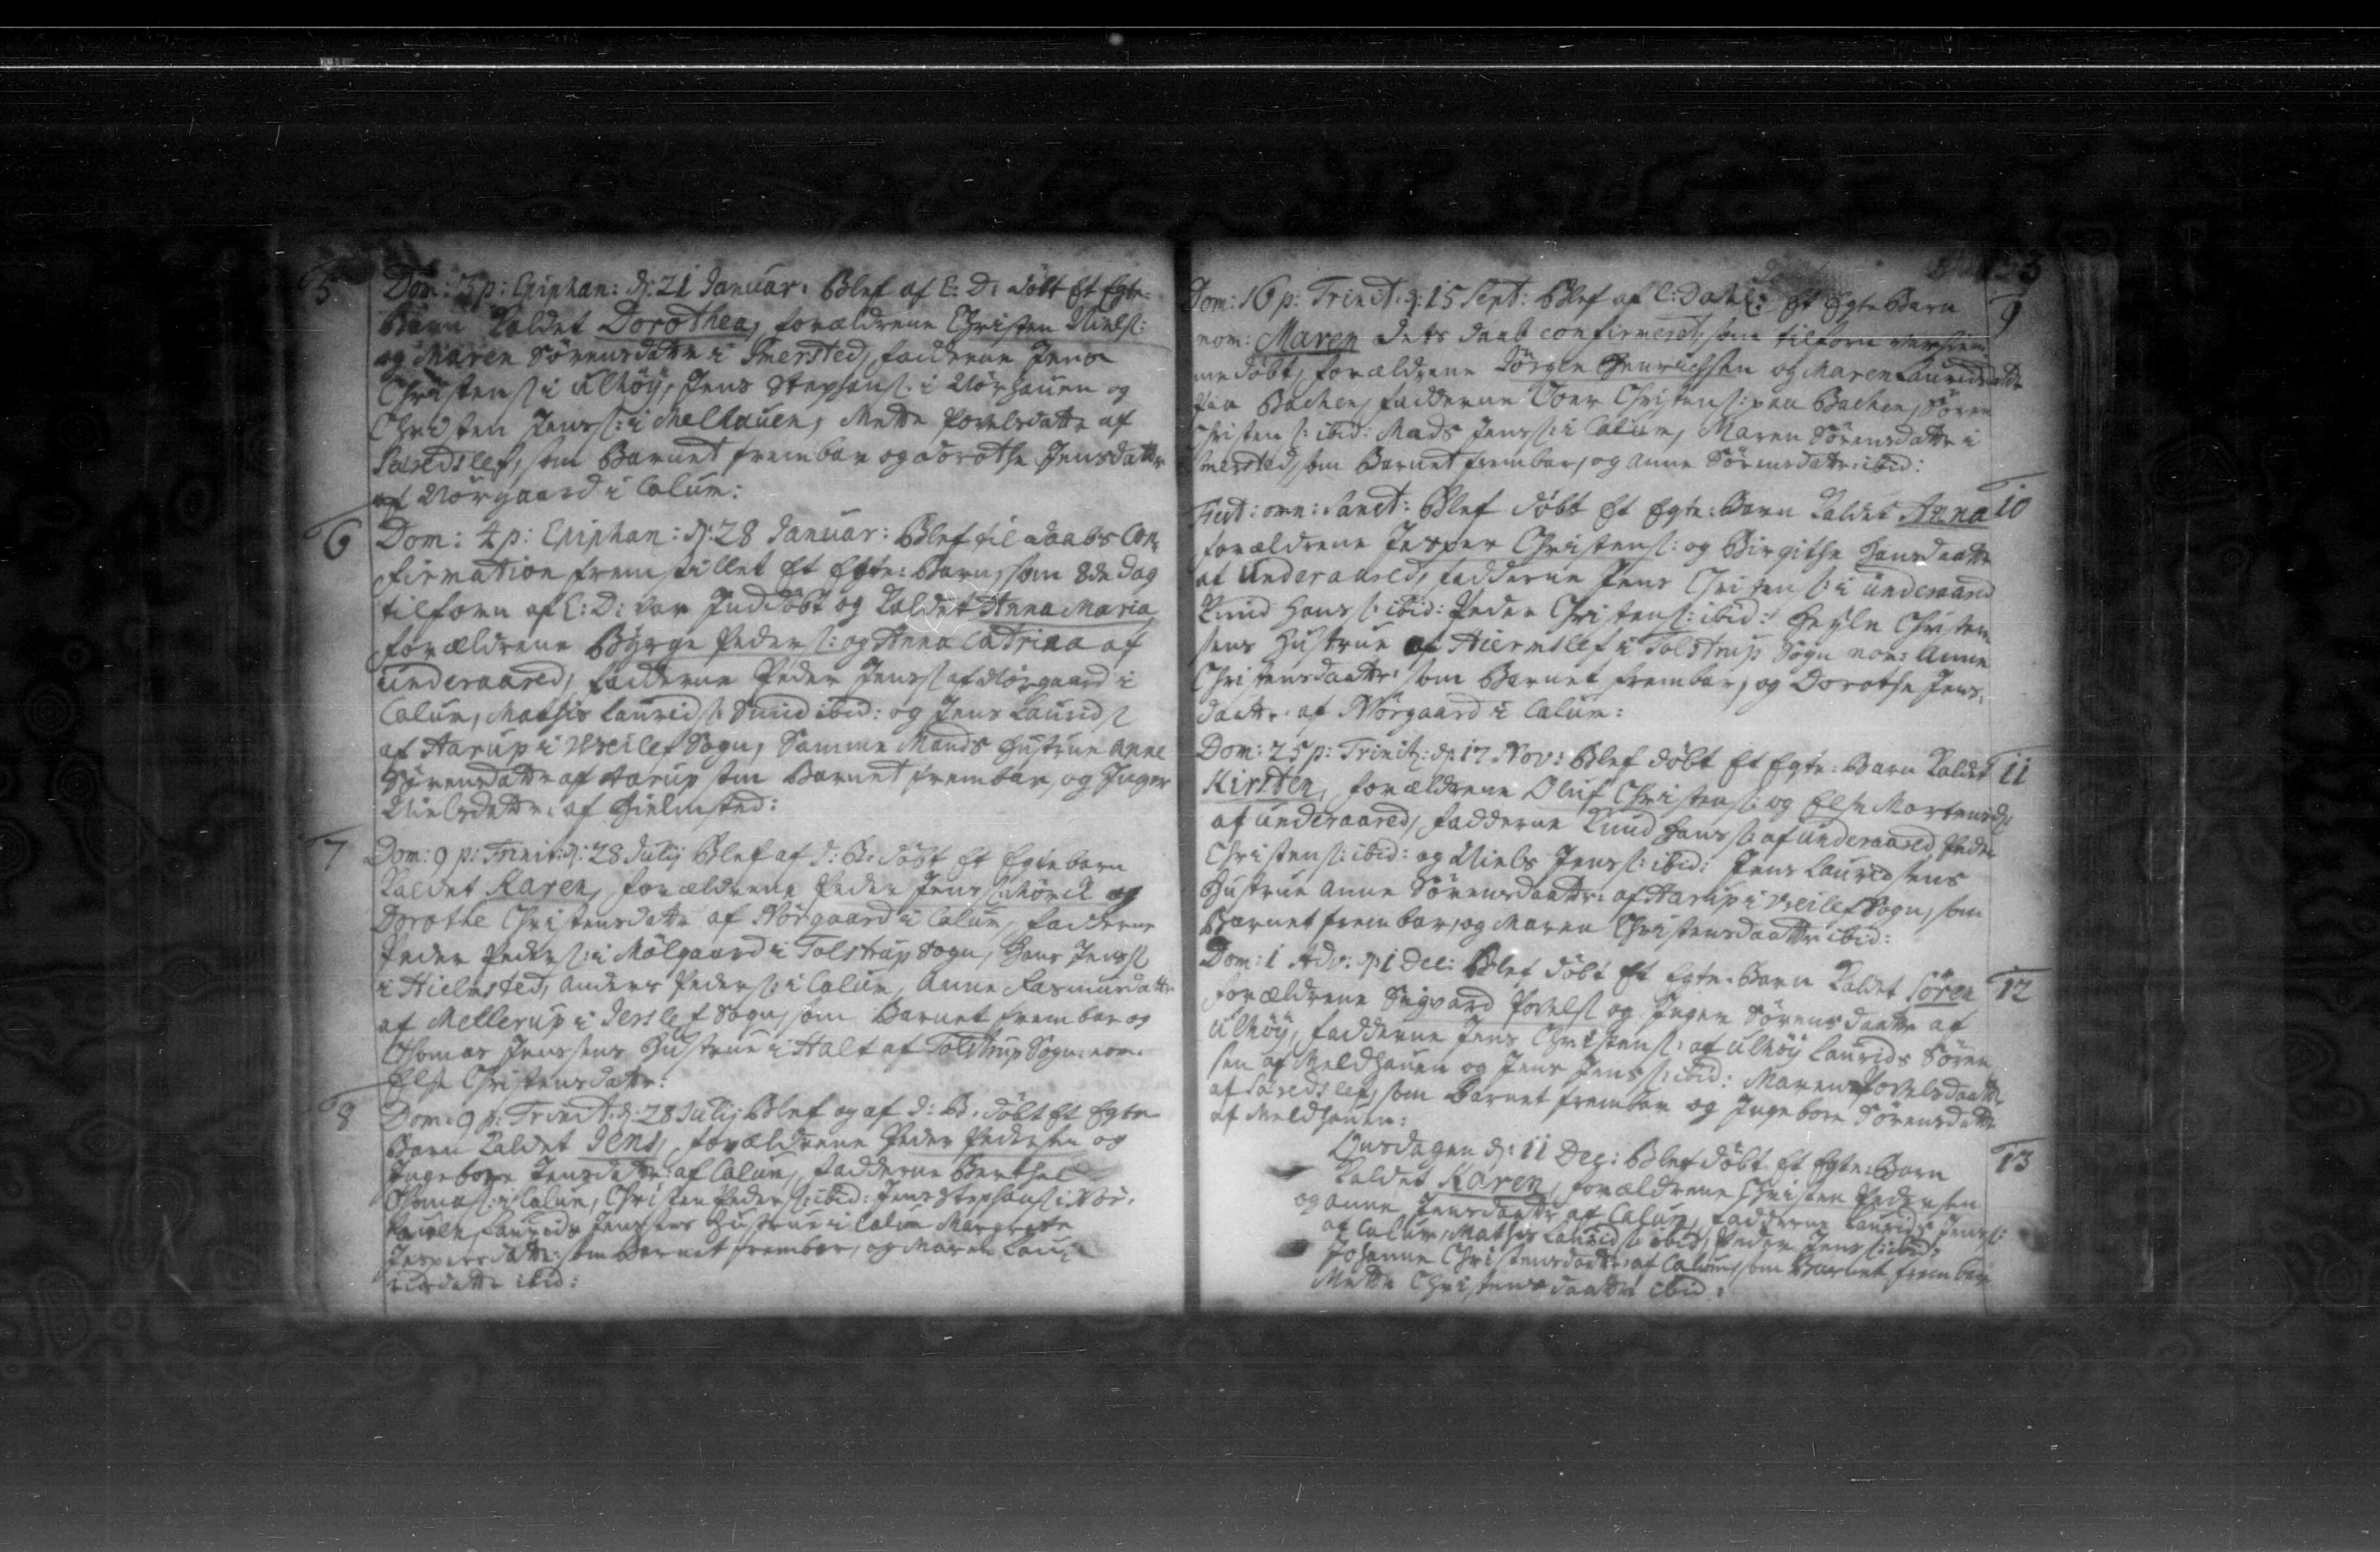 5
Dom: 3 p: Epiphan: d: 21 Januar: Blef af C: D: döbt Et Egte-
Barn Kaldet Dorothea, forældrene Christen Niels:
og Maren Sörensdattr i Smersted, fadderne Jens
Christens: i Ulhöÿ, Jens Stephens: i Nörhauen og
Christen Jenss: i Melhauen, Mette Povelsdattr af
som Barnet frembar og Dorothe Jensdattr
af Nörgaard i Calum:
6
Dom: 4 p: Epiphan: d: 28 Januar: Blef til Daabs Con-
firmation fremstillet Et Egte: Barn, som 8de dag
tilforn af C: D: var Inddöbt og Kaldet Anna Maria
forældrene Byrge Peders: og Anna Catrina af
underaared, fadderne Peder Jenss af Nörgaard i
Calum, Mathis Laurids: Smid ibid: og Jens Laurids
af Aarup i Vreilef Sogn, Samme Mands Hustrue Anne
Sörensdattr af Aarup som Barnet frembar og Inger
Nielsdattr: af Hielmsted:
7
Dom: 9 p: Trinit: d: 28 Julij Blef af J: B: döbt Et Egte barn
Kaldet Karen, forældrene Peder Jens: Mörck og
Dorothe Christensdattr af Nörgaard i Calum, fadderne
Peder Peders: i Mölgaard i Tolstrup Sogn, Hans Jenss
i Hielmsted, Anders Peders: i Calum, Anne Rasmusdattr
af Mellerup i Jerslef Sogn, som Barnet frembar og
Thomas Jenssens Hustrue i Halt af Tolstrup Sogn: nom:
Else Christensdattr:
8
Dom: 9 p: Trinit: d: 28 Julij Blef og af J: B: döbt Et Egte
Barn Kaldet Jens, forældrene Peder Pedersen og
Ingebore Jensdattr: af Calum, fadderne Berthel
Thomas: i Calum, Christen Peders: ibid: Jens Stephens: i Nör-
hauen, Laurids Jenssens Hustrue i Calum Margrete
Jespersdattr: som Barnet frembar, og Maren Lau-
ridsdattr ibid:
Dom: 16 p: Trinit: d: 15 Sept: Blef af Et Egte Barn
9
nom: Maren dets daab confirmeret, som tilforn var hiem-
medöbt, forældrene Jörgen Henrichsen og Maren Lauridsdattr
paa Bachen, fadderne Christens: paa Bachen, Sören
Christens: ibid: Mads Jenss: i Calum, Maren Sörensdattr i
Smersted, som Barnet frembar, og Anne Sörensdattr: ibid:
Fest: omn: Sanct: Blef döbt Et Egte: Barn Kaldet Anna
10
forældrene Jesper Christens: og Birgithe Hansdaattr
af underaared, fadderne Jens Christens: i underaared
Knud Hanss: ibid: Peder Christens: ibid: Christen-
sens Hustrue af Hiermslef i Tolstrup Sogn nom: Anne
Christensdaattr: som Barnet frembar, og Dorothe Jens-
daattr: af Nörgaard i Calum:
Dom: 25 p: Trinit: d: 17 Nov: Blef döbt Et Egte: Barn Kaldet
11
Kirsten, forældrene Oluf Christens: og Else Mortensd:
af underaared, fadderne Knud Hanss: af underaared Peder
Christens: ibid: og Niels Jenss: ibid: Jens Lauridsens
Hustrue Anne Sörensdaattr: af Aarup i Vreilef Sogn, som
Barnet frembar, og Maren Christensdaattr ibid:
Dom: 1 Adv: d: 1 Dec: Blef döbt Et Egte-Barn Kaldet Sören
12
forældrene Sigvard Povels: og Inger Sörensdaattr af
Ulhöÿ, fadderne Jens Christens: af Ulhöÿ Laurids Sören-
sen af Meldhauen og Jens Jenss: ibid: Maren Povelsdaattr
som Barnet frembar og Ingebore Sörensdattr
af Meldhauen:
Onsdagen d: 11 Dec: Blef döbt Et Egte: Barn
13
Kaldet Karen, forældrene Christen Pedersen
og Anne Jensdaattr af Calum, fadderne Laurids Jenss:
af Calum, Mathis Laurids: ibid, Peder Jenss: ibid:
Johanne Christensdaattr: af Calum, som Barnet frembar
Mette Christensdaattr ibid: